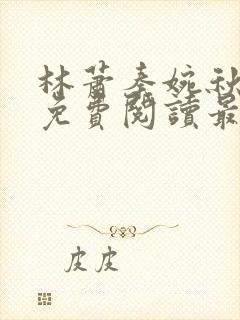 林蕭秦婉秋
免費閱讀最
皮皮